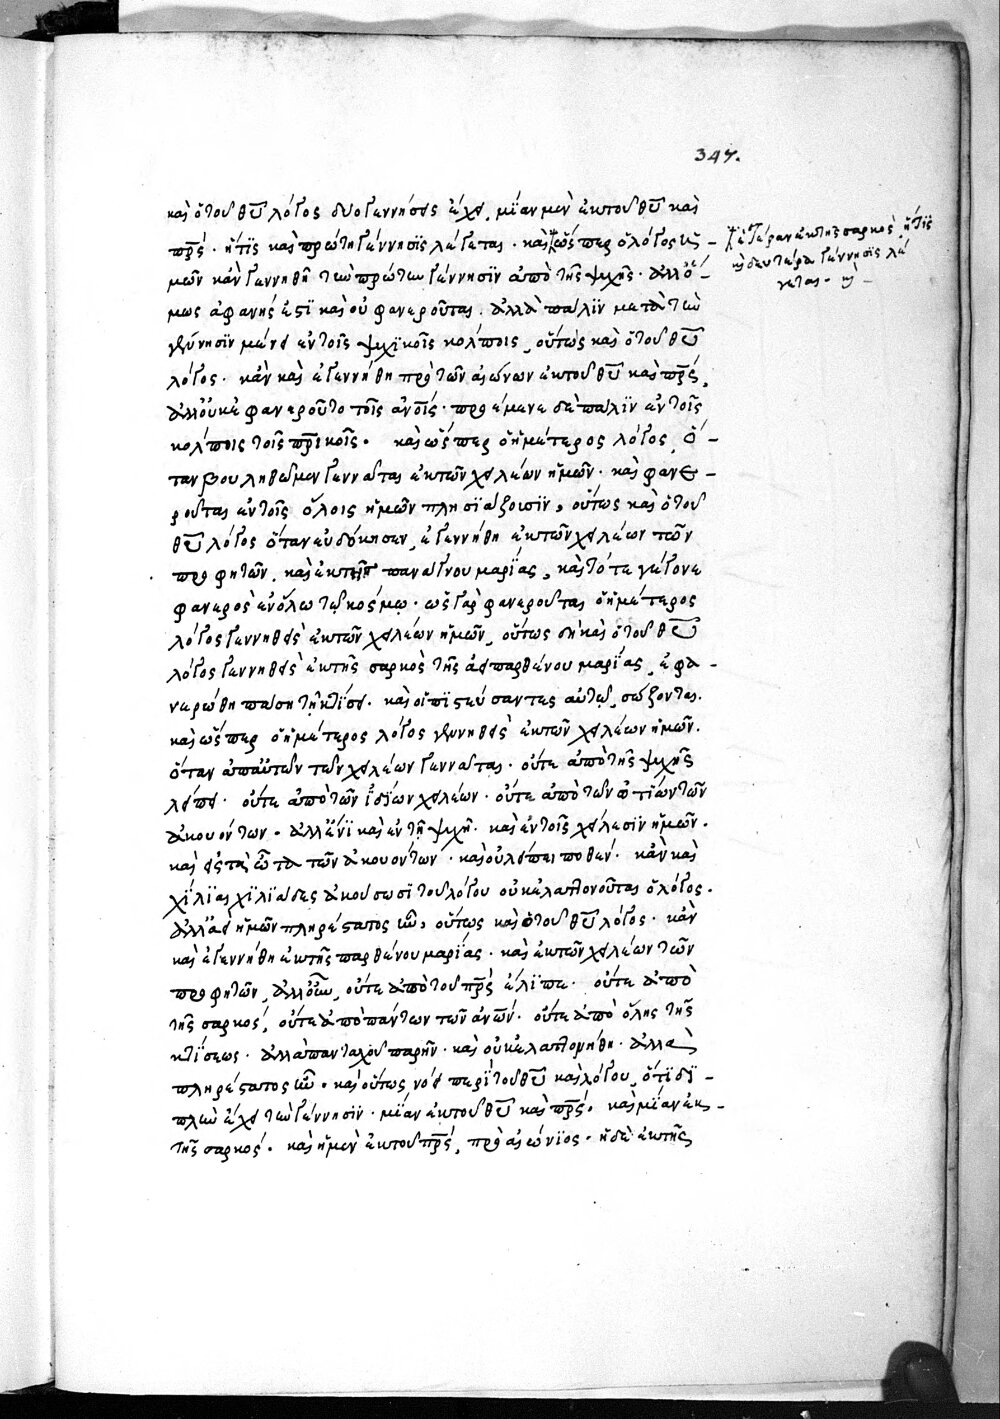 347.
καὶ ὁ τοῦ θῦ λόγος δύο γεννήσεις ἔχει, μίαν μὲν ἐκ τοῦ θῦ καὶ
πρς· ἥτις καὶ πρώτη γέννησις λέγεται· καὶ ὥσπερ ὁ λόγος ἡ-
μῶν κἂν γεννηθῆ τὼ πρώτω γέννησιν ἀπὸ τῆς ψυχῆς· ἀλλ' ὅ-
μως ἀφανής ἐστι καὶ οὐ φανεροῦται. ἀλλὰ πάλιν μετὰ τὼ
γέννησιν μένει ἐν τοῖς ψυχικοῖς κόλποις, οὕτως καὶ ὁ τοῦ θῦ
λόγος· κἂν καὶ ἐγεννήθη πρὸ τῶν αἰώνων ἐκ τοῦ θῦ καὶ πρς,
ἀλλ' οὐκ ἐφανεροῦτο τοῖς ἀνοις· προέμενε δὲ πάλιν ἐν τοῖς
κόλποις τοῖς πρικοῖς. καὶ ὥσπερ ὁ ἡμέτερος λόγος, ὅ-
ταν βουληθῶμεν γεννᾶται ἐκ τῶν χειλέων ἡμῶν· καὶ φανε-
ροῦται ἐν τοῖς ὅλοις ἡμῶν πλησιάζουσιν, οὕτως καὶ ὁ τοῦ
θῦ λόγος ὅταν εὐδόκησεν, ἐγεννήθη ἐκ τῶν χειλέων τῶν
προφητῶν, καὶ ἐκ τῆς παναγίου μαρίας, καὶ τότε γέγονε
φανερὸς ἐν ὅλω τῷ κόσμῳ· ὡς γὰρ φανεροῦται ὁ ἡμέτερος
λόγος γεννηθεὶς ἐκ τῶν χειλέων ἡμῶν, οὕτως δὴ καὶ ὁ τοῦ θῦ
λόγος γεννηθεὶς ἐκ τῆς σαρκὸς τῆς ἀειπαρθένου μαρίας, ἐφα-
νερώθη πάση τῆ κτίσει· καὶ οἱ πιστεύσαντες αὐτῷ, σώζονται.
καὶ ὥσπερ ὁ ἡμέτερος λόγος γεννηθεὶς ἐκ τῶν χειλέων ἡμῶν.
ὅταν ἀπ' αὐτῶν τῶν χειλέων γεννᾶται· οὔτε ἀπὸ τῆς ψυχῆς
λείπει· οὔτε ἀπὸ τῶν ἰδίων χειλέων· οὔτε ἀπὸ τῶν ὠτίων τῶν
ἀκουόντων. ἀλλ' ἔνι καὶ ἐν τῆ ψυχῆ· καὶ ἐν τοῖς χείλεσιν ἡμῶν.
καὶ εἰς τὰ ὦτα τῶν ἀκουόντων· καὶ οὐ λείπει ποθέν· κἂν καὶ
χίλιαι χιλιάδες ἀκούσωσι τοῦ λόγου οὐ κελαττονοῦται ὁ λόγος.
ἀλλ' ἀεὶ ἡμῶν πληρέστατος ὢν, οὕτως καὶ ὁ τοῦ θῦ λόγος· κἂν
καὶ ἐγεννήθη ἐκ τῆς παρθένου μαρίας· καὶ ἐκ τῶν χειλέων τῶν
προφητῶν, ἀλλ' οὖν, οὔτε ἀπὸ τοῦ πρς ἔλιπε· οὔτε ἀπὸ
τῆς σαρκός, οὔτε ἀπὸ πάντων τῶν ἀνων· οὔτε ἀπὸ ὅλης τῆς
κτίσεως· ἀλλὰ πανταχοῦ παρῆν· καὶ οὐκ ἐλαττονήθη· ἀλλὰ
πληρέστατος ὢν· καὶ οὕτως νόει περὶ τοῦ θῦ καὶ λόγου, ὅτι δι-
πλὼ ἔχει τὼ γέννησιν· μίαν ἐκ τοῦ θῦ καὶ πρς. καὶ μίαν ἐκ-
τῆς σαρκός. καὶ ἡ μὲν ἐκ τοῦ πρς, πρὸ αἰώνιος· ἡ δὲ ἐκ τῆς
ἑτέραν ἐκ τῆς σαρκὸς, ἥτις
καὶ δευτέρα γέννησις λέ
γεται. καὶ